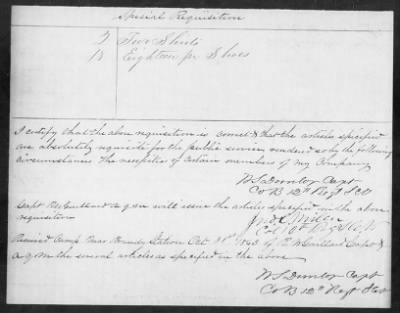 Special Requisition
2 Two Shirts
18 Eighteen pr Shoes
I certify that the above requisition is correct & that the articles specified
are absolutely requisite for the public service, rendered so by the following
circumstances The necessities of certain members of my Company
W S Dunlop Capt
Co B 12th Regt SCV
Capt R W Gaillard a q m will issue the articles specified in the above
requisition
Jno L Miller
Col Regt
Received Camp near Station Oct 1863 of R W Gaillard Capt &
a q m the several articles as specified in the above
W S Dunlop Capt
Co B 12th Regt